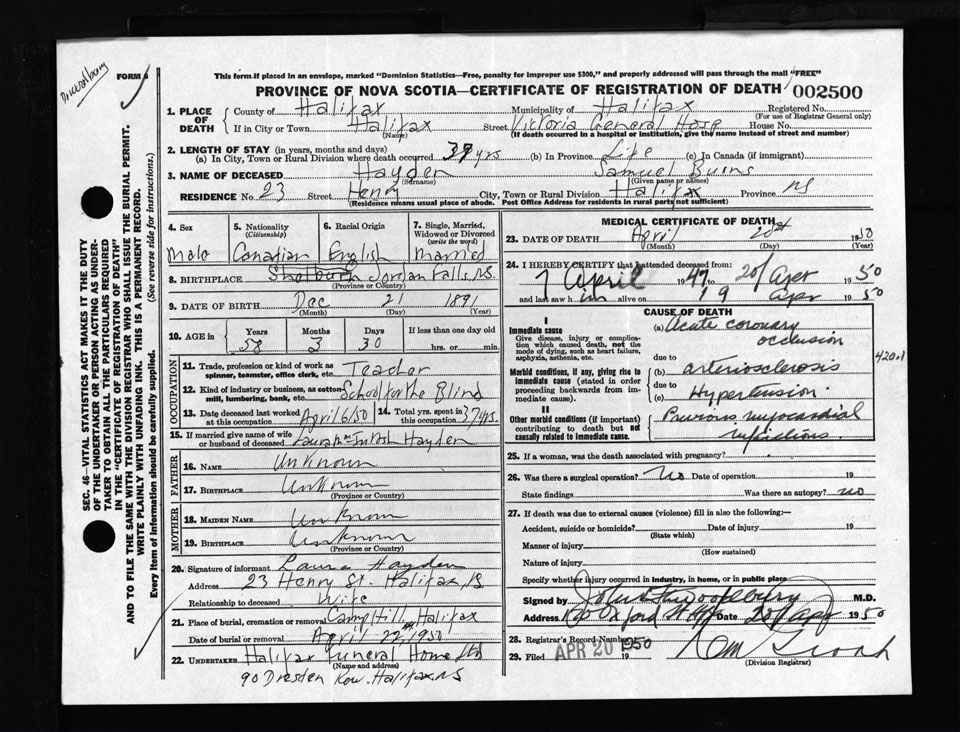 Dr. Woodbury
FORM
This form if placed in an envelope, marked "Dominion Statistics—Free, penalty for improper use $300," and properly addressed will pass through the mail "FREE"
PROVINCE OF NOVA SCOTIA—CERTIFICATE OF REGISTRATION OF DEATH 002500
1. PLACE OF DEATH County of Halifax Municipality of Halifax Registered No.
(For use of Registrar General only)
If in City or Town Halifax Street Victoria General Hosp House No.
(Name) (If death occurred in a hospital or institution, give the name instead of street and number)
2. LENGTH OF STAY (in years, months and days)
(a) In City, Town or Rural Division where death occurred 39 yrs (b) In Province Life (c) In Canada (if immigrant)
3. NAME OF DECEASED Hayden Samuel Burns
(Surname) (Given name or names)
RESIDENCE No. 23 Street Henry City, Town or Rural Division Halifax Province NS
(Residence means usual place of abode. Post Office Address for residents in rural parts not sufficient)
4. Sex Male
5. Nationality (Citizenship) Canadian
6. Racial Origin English
7. Single, Married, Widowed or Divorced (write the word) Married
8. BIRTHPLACE Shelburn Jordan Falls, NS.
(Province or Country)
9. DATE OF BIRTH Dec 21 1891
(Month) (Day) (Year)
10. AGE in Years Months Days If less than one day old
58 3 30 hrs. or min.
OCCUPATION
11. Trade, profession or kind of work as spinner, teamster, office clerk, etc. Teacher
12. Kind of industry or business, as cotton mill, lumbering, bank, etc. School for the Blind
13. Date deceased last worked at this occupation April 6/50 14. Total yrs. spent in this occupation 37 yrs.
15. If married give name of wife or husband of deceased Laura Hayden
FATHER
16. NAME Unknown
17. BIRTHPLACE Unknown
(Province or Country)
MOTHER
18. MAIDEN NAME Unknown
19. BIRTHPLACE Unknown
(Province or Country)
20. Signature of informant Laura Hayden
Address 23 Henry St. Halifax, NS
Relationship to deceased Wife
21. Place of burial, cremation or removal Camp Hill, Halifax
Date of burial or removal April 22, 1950
22. UNDERTAKER Halifax Funeral Home Ltd
(Name and address)
90 Dresden Row. Halifax, NS
MEDICAL CERTIFICATE OF DEATH
23. DATE OF DEATH April 20st 1950
(Month) (Day) (Year)
24. I HEREBY CERTIFY that I attended deceased from:
7 April 1947 to 20/Apr 1950
and last saw him alive on 19 Apr 1950
CAUSE OF DEATH
I
Immediate cause
Give disease, injury or complication which caused death, not the mode of dying, such as heart failure, asphyxia, asthenia, etc.
(a) Acute coronary occlusion
420.1
due to
Morbid conditions, if any, giving rise to immediate cause (stated in order proceeding backwards from immediate cause).
(b) arteriosclerosis
due to
(c) Hypertension
II
Other morbid conditions (if important) contributing to death but not causally related to immediate cause.
Previous myocardial infarctions
25. If a woman, was the death associated with pregnancy?
26. Was there a surgical operation? No Date of operation 19
State findings Was there an autopsy? no
27. If death was due to external causes (violence) fill in also the following:—
Accident, suicide or homicide? Date of injury 19
(State which)
Manner of injury
(How sustained)
Nature of injury
Specify whether injury occurred in industry, in home, or in public place
Signed by John Woodbury M.D.
Address Oxford St Hfx Date 20/Apr 1950
28. Registrar's Record Number
29. Filed APR 20 1950 19
(Division Registrar)
SEC. 46—VITAL STATISTICS ACT MAKES IT THE DUTY OF THE UNDERTAKER OR PERSON ACTING AS UNDERTAKER TO OBTAIN ALL THE PARTICULARS REQUIRED IN THE "CERTIFICATE OF REGISTRATION OF DEATH" AND TO FILE THE SAME WITH THE DIVISION REGISTRAR WHO SHALL ISSUE THE BURIAL PERMIT.
WRITE PLAINLY WITH UNFADING INK. THIS IS A PERMANENT RECORD.
Every item of Information should be carefully supplied. (See reverse side for instructions.)